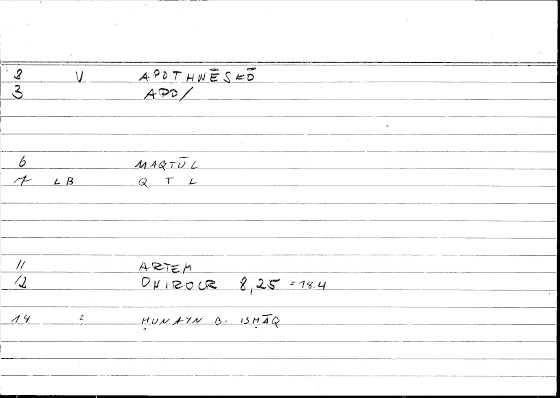 2 V APOTHNĒSKŌ
3 APO/
6 MAQTŪL
7 LB Q T L
11 ARTEM
12 ONIROCR 8,25 =18.4
14 ḤUNAYN B. ISḤĀQ